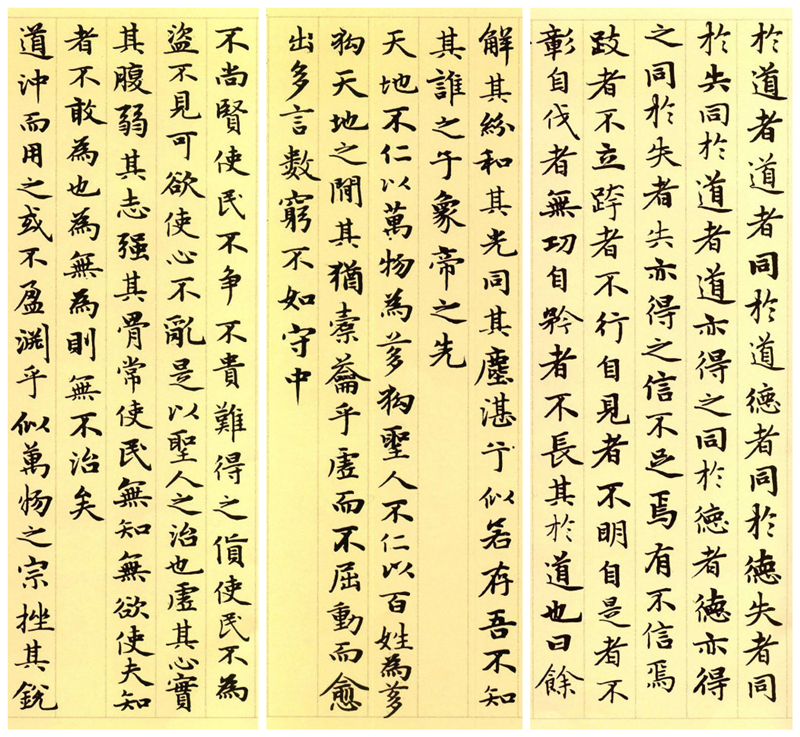 不尚賢使民不争不貴難得之貨使民不為
盜不見可欲使心不亂是以聖人之治也虛其心實
其腹弱其志强其骨常使民無知無欲使夫知
者不敢為也為無為則無不治矣
道沖而用之或不盈淵乎似萬物之宗挫其銳
解其紛和其光同其塵湛兮似若存吾不知
其誰之子象帝之先
天地不仁以萬物為芻狗聖人不仁以百姓為芻
狗天地之間其猶橐籥乎虛而不屈動而愈
出多言數窮不如守中
於道者道者同於道德者同於德失者同
於失同於道者道亦得之同於德者德亦得
之同於失者失亦得之信不足焉有不信焉
跂者不立跨者不行自見者不明自是者不
彰自伐者無功自矜者不長其於道也曰餘